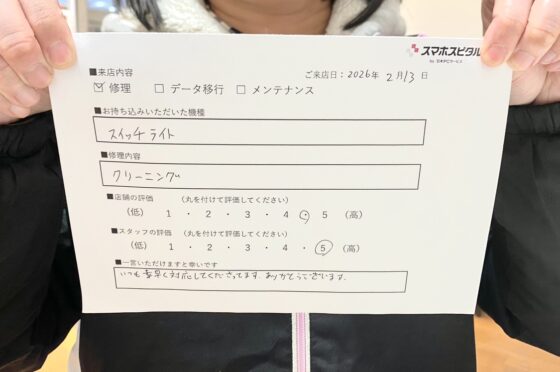 スマホスピタル
by 日本PCサービス
■来店内容
ご来店日：2026年 2月13日
☑ 修理 □ データ移行 □ メンテナンス
■お持ち込みいただいた機種
スイッチライト
■修理内容
クリーニング
■店舗の評価 （丸を付けて評価してください）
（低） 1 ・ 2 ・ 3 ・ 4 ・ 5 （高）
■スタッフの評価 （丸を付けて評価してください）
（低） 1 ・ 2 ・ 3 ・ 4 ・ 5 （高）
■一言いただけますと幸いです
いつも素早く対応してくださってます。ありがとうございます。